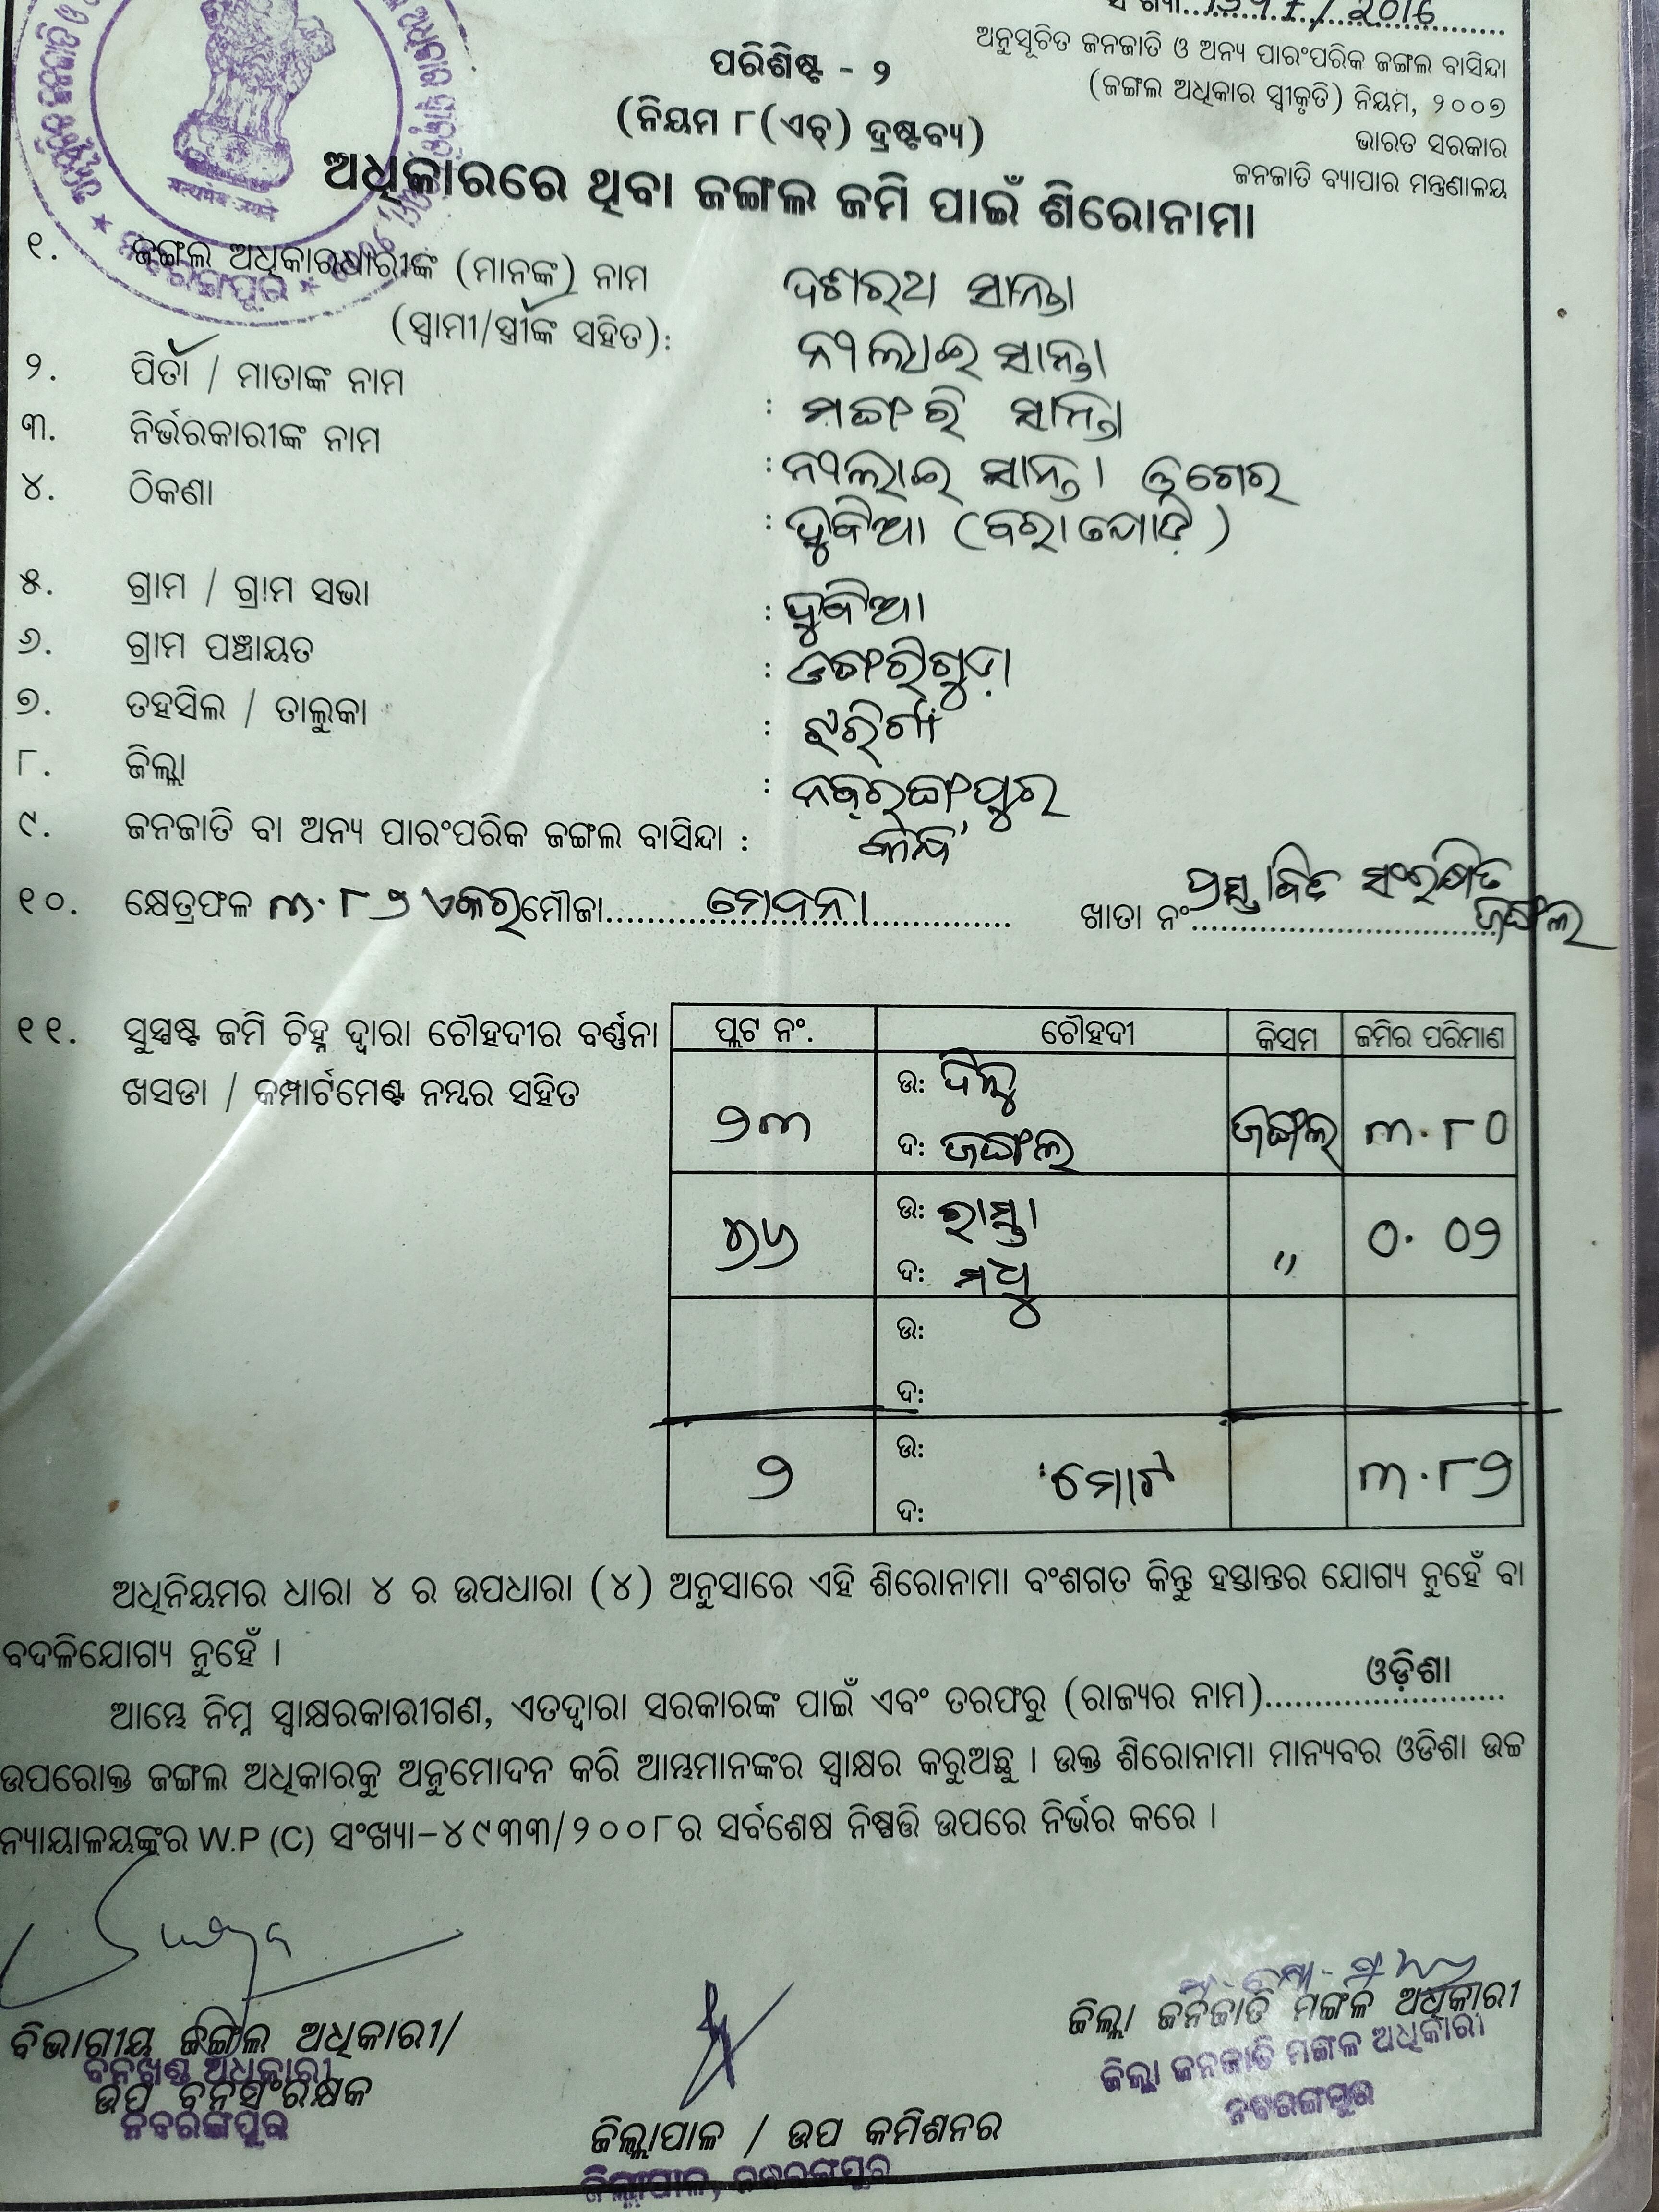 ପରିଶିଷ୍ଟ - ୨
(ନିୟମ ୮(ଏଚ୍) ଦ୍ରଷ୍ଟବ୍ୟ)
ଅନୁସୂଚିତ ଜନଜାତି ଓ ଅନ୍ୟ ପାରଂପରିକ ଜଙ୍ଗଲ ବାସିନ୍ଦା
(ଜଙ୍ଗଲ ଅଧିକାର ସ୍ଵୀକୃତି) ନିୟମ, ୨୦୦୭
ଭାରତ ସରକାର
ଜନଜାତି ବ୍ୟାପାର ମନ୍ତ୍ରଣାଳୟ
ଅଧିକାରରେ ଥିବା ଜଙ୍ଗଲ ଜମି ପାଇଁ ଶିରୋନାମା
୧. ଜଙ୍ଗଲ ଅଧିକାରଧାରୀଙ୍କ (ମାନଙ୍କ) ନାମ ଦଶରଥ ସାନ୍ତା
(ସ୍ଵାମୀ/ସ୍ତ୍ରୀଙ୍କ ସହିତ):
୨. ପିତା / ମାତାଙ୍କ ନାମ : ମଙ୍ଗରି ସାନ୍ତା
୩. ନିର୍ଭରକାରୀଙ୍କ ନାମ : ସାନ୍ତା
୪. ଠିକଣା :
୫. ଗ୍ରାମ / ଗ୍ରାମ ସଭା :
୬. ଗ୍ରାମ ପଞ୍ଚାୟତ :
୭. ତହସିଲ / ତାଲୁକା : ଝରିଗାଁ
୮. ଜିଲ୍ଲା : ନବରଙ୍ଗପୁର
୯. ଜନଜାତି ବା ଅନ୍ୟ ପାରଂପରିକ ଜଙ୍ଗଲ ବାସିନ୍ଦା :
୧୦. କ୍ଷେତ୍ରଫଳ ୩.୮୨ ଏକର ମୌଜା........ ଖାତା ନଂ........ ପ୍ରସ୍ତାବିତ ସଂରକ୍ଷିତ
ଜଙ୍ଗଲ
୧୧. ସୁସ୍ପଷ୍ଟ ଜମି ଚିହ୍ନ ଦ୍ଵାରା ଚୌହଦୀର ବର୍ଣ୍ଣନା
ଖସଡା / କମ୍ପାର୍ଟମେଣ୍ଟ ନମ୍ବର ସହିତ
ପ୍ଲଟ ନଂ. ଚୌହଦୀ କିସମ ଜମିର ପରିମାଣ
୨୩ ଉ: ଦିଲୁ ଜଙ୍ଗଲ ୩.୮୦
ଦ: ଜଙ୍ଗଲ
ଉ: ରାସ୍ତା " ୦.୦୨
ଦ: ମଧୁ
ଉ:
ଦ:
୨ ଉ: ମୋଟ ୩.୮୨
ଦ:
ଅଧିନିୟମର ଧାରା ୪ ର ଉପଧାରା (୪) ଅନୁସାରେ ଏହି ଶିରୋନାମା ବଂଶଗତ କିନ୍ତୁ ହସ୍ତାନ୍ତର ଯୋଗ୍ୟ ନୁହେଁ ବା
ବଦଳିଯୋଗ୍ୟ ନୁହେଁ ।
ଆମ୍ଭେ ନିମ୍ନ ସ୍ଵାକ୍ଷରକାରୀଗଣ, ଏତଦ୍ଵାରା ସରକାରଙ୍କ ପାଇଁ ଏବଂ ତରଫରୁ (ରାଜ୍ୟର ନାମ)........ ଓଡ଼ିଶା
ଉପରୋକ୍ତ ଜଙ୍ଗଲ ଅଧିକାରକୁ ଅନୁମୋଦନ କରି ଆମ୍ଭମାନଙ୍କର ସ୍ଵାକ୍ଷର କରୁଅଛୁ । ଉକ୍ତ ଶିରୋନାମା ମାନ୍ୟବର ଓଡିଶା ଉଚ୍ଚ
ନ୍ୟାୟାଳୟଙ୍କର W.P (C) ସଂଖ୍ୟା-୪୯୩୩/୨୦୦୮ର ସର୍ବଶେଷ ନିଷ୍ପତ୍ତି ଉପରେ ନିର୍ଭର କରେ ।
ବିଭାଗୀୟ ଜଙ୍ଗଲ ଅଧିକାରୀ/
ବନଖଣ୍ଡ ଅଧିକାରୀ
ଉପ ବନସଂରକ୍ଷକ
ନବରଙ୍ଗପୁର
ଜିଲ୍ଲାପାଳ / ଉପ କମିଶନର
ଜିଲ୍ଲାପାଳ, ନବରଙ୍ଗପୁର
ଜିଲ୍ଲା ଜନଜାତି ମଙ୍ଗଳ ଅଧିକାରୀ
ଜିଲ୍ଲା ଜନଜାତି ମଙ୍ଗଳ ଅଧିକାରୀ
ନବରଙ୍ଗପୁର